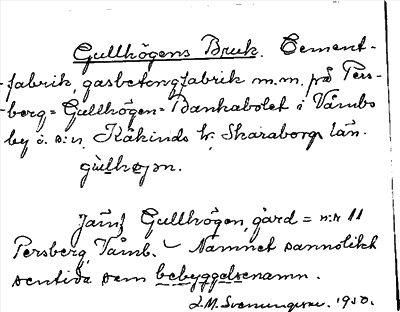 Gullhögens Bruk. Cement-
-fabrik, gasbetongfabrik m.m. på Pers-
-berg = Gullhögen = Bankabolet i Våmbs
by o. s:n, Kåkinds hr, Skaraborgs län.
gùlhøȷən.
Jämf Gullhögen, gård = n:r 11
Persberg, Våmb. – Namnet sannolikt
sentida som bebyggelsenamn.
J.M. Svenungsson. 1950.